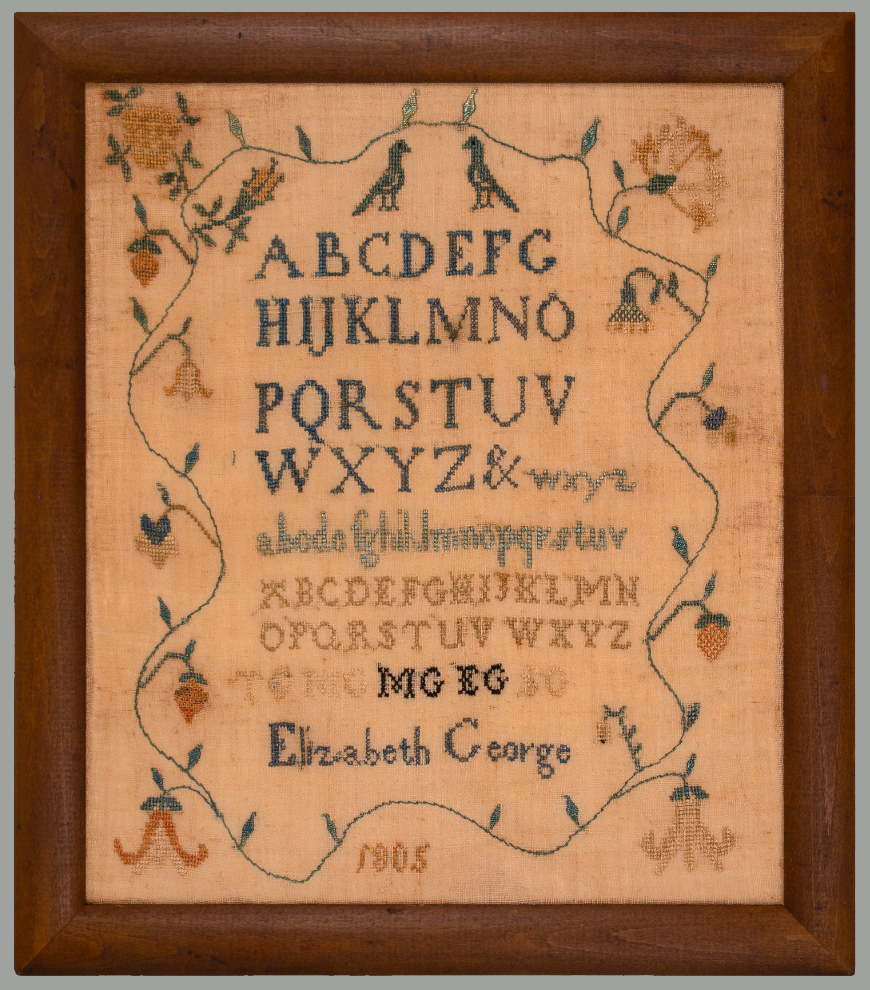 ABCDEFG
HIJKLMNO
PQRSTUV
WXYZ& wxyz
abcdefghiklmnopqrstuv
ABCDEFGHIJKLMN
OPQRSTUVWXYZ
TG MG MG EG
Elizabeth George
1805